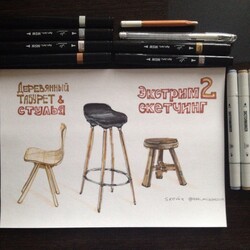 Деревянный
табурет &
стулья
Экстрим 2
скетчинг